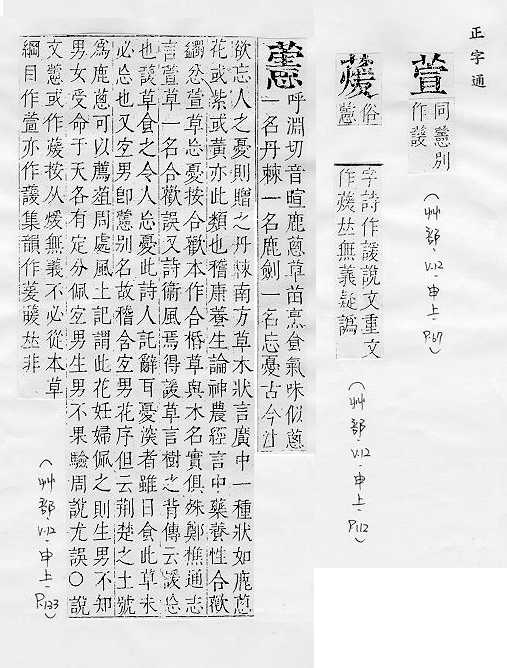 正字通
萱
同藼別
作蕿
(艸部·V.12·申上·P.67)
蕿
俗
藼
字詩作諼說文重文
作蕿𠀤無義疑譌
(艸部·V.12·申上·P.112)
藼
呼淵切音暄鹿蔥草苗烹食氣味似蔥
一名丹棘一名鹿劍一名忘憂古今注
欲忘人之憂則贈之丹棘南方草木狀言廣中一種狀如鹿蔥
花或紫或黃亦此類也嵇康養生論神農經言中藥養性合歡
蠲忿萱草忘憂按合歡本作合棔草與木名實俱殊鄭樵通志
言萱草一名合歡誤又詩衞風焉得諼草言樹之背傳云諼忘
也諼草食之令人忘憂此詩人託辭耳憂深者雖日食此草未
必忘也又宜男卽藼別名故嵇含宜男花序但云荊楚之土號
爲鹿蔥可以薦葅周處風土記謂此花妊婦佩之則生男不知
男女受命于天各有定分佩宜男生男不果驗周說尤誤○說
文藼或作蕿按从煖無義不必從本草
綱目作萱亦作諼集韻作萲蕿𠀤非
(艸部·V.12·申上·P.133)